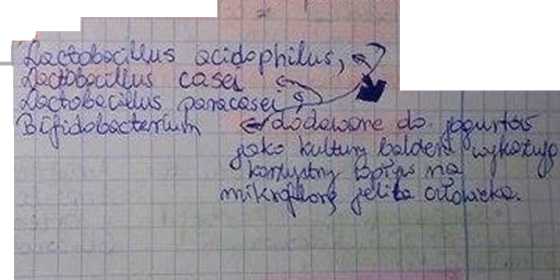 Lactobacillus acidophilus,
Lactobacillus casei
Lactobacillus paracasei
Bifidobacterium
dodawane do jogurtów
jako kultury wykazują
korzystny wpływ na
mikroflorę jelita człowieka.